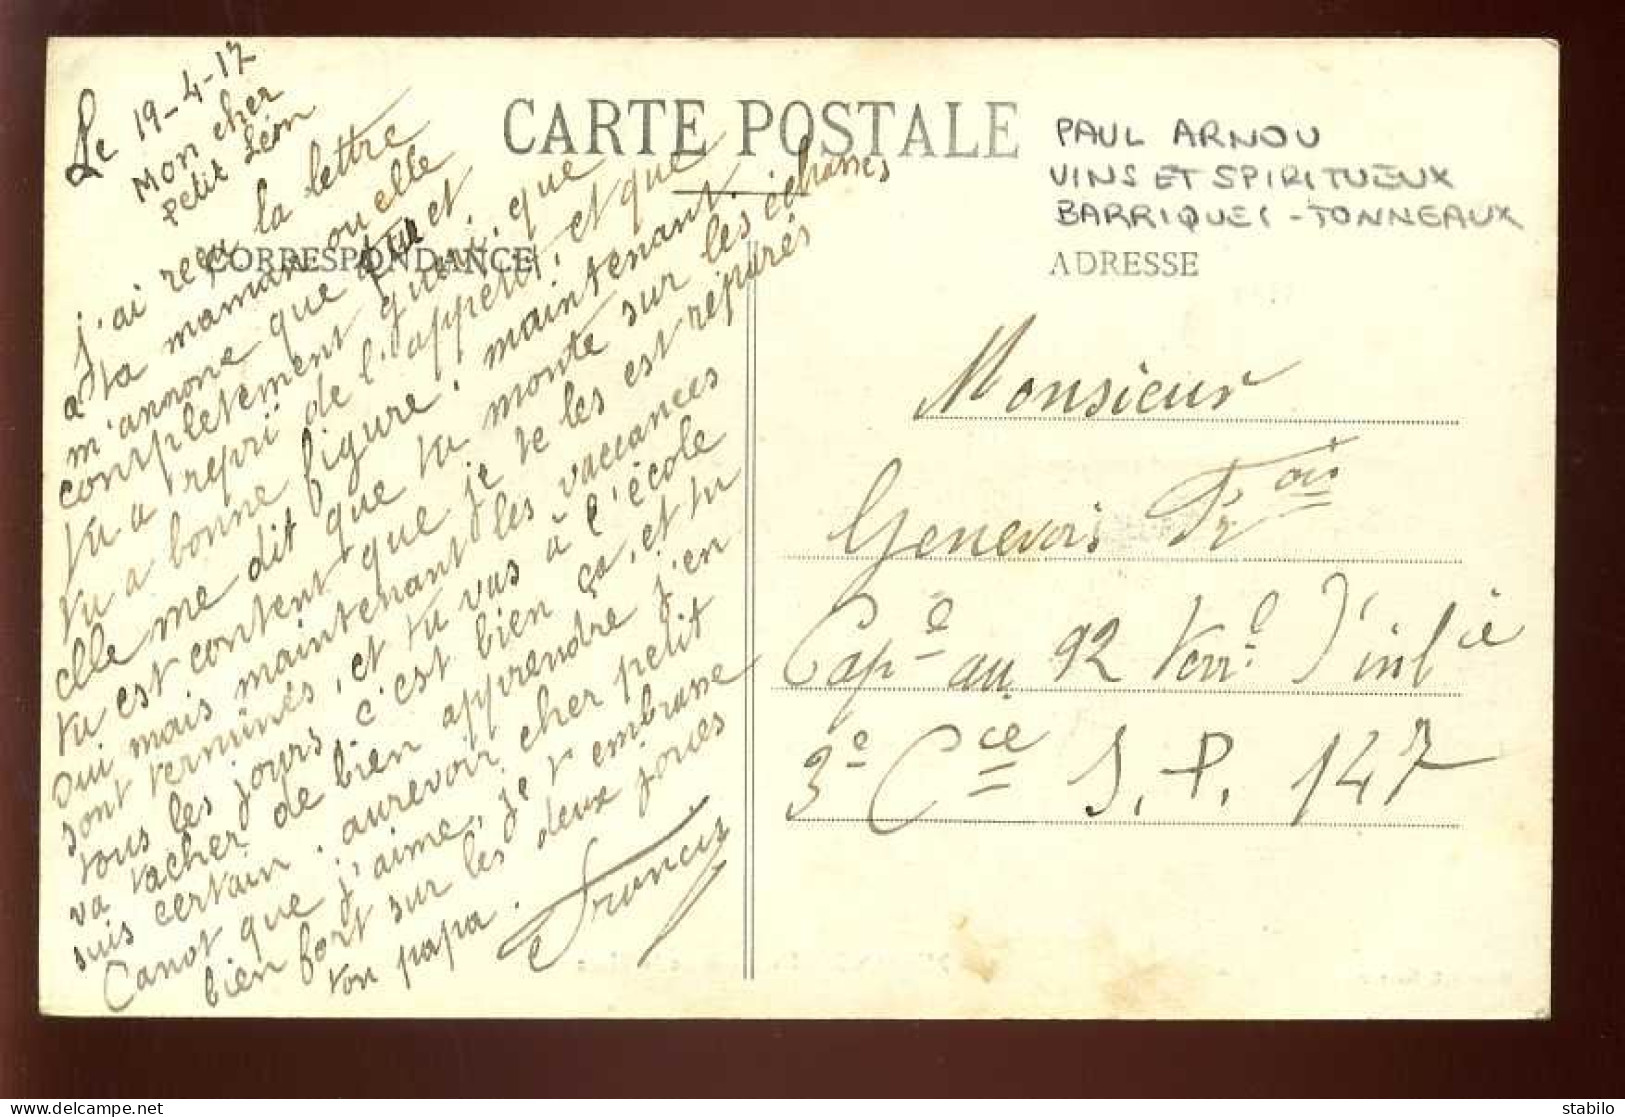 Le 19-4-17
Mon cher
petit Léon
j'ai reçu la lettre
a ta maman ou elle
m'annone que tu et
completement gueri, que
tu a repri de l'appetit, et que
tu a bonne figure, maintenant.
elle me dit que tu monte sur les échasses
tu est content que je te les est réparés
oui mais maintenant les vaccances
sont terminés, et tu vas à l'école
tous les jours, c'est bien ça, et tu
va tacher de bien apprendre j'en
suis certain. aurevoir cher petit
Canot que j'aime, je t embrasse
bien fort sur les deux joues
ton papa. Francis
CARTE POSTALE
CORRESPONDANCE
PAUL ARNOU
VINS ET SPIRITUEUX
BARRIQUES - TONNEAUX
ADRESSE
Monsieur
Genevois Frois
Cape au 92 Terrl d'inf ie
3e Cie S. P. 147
stabilo